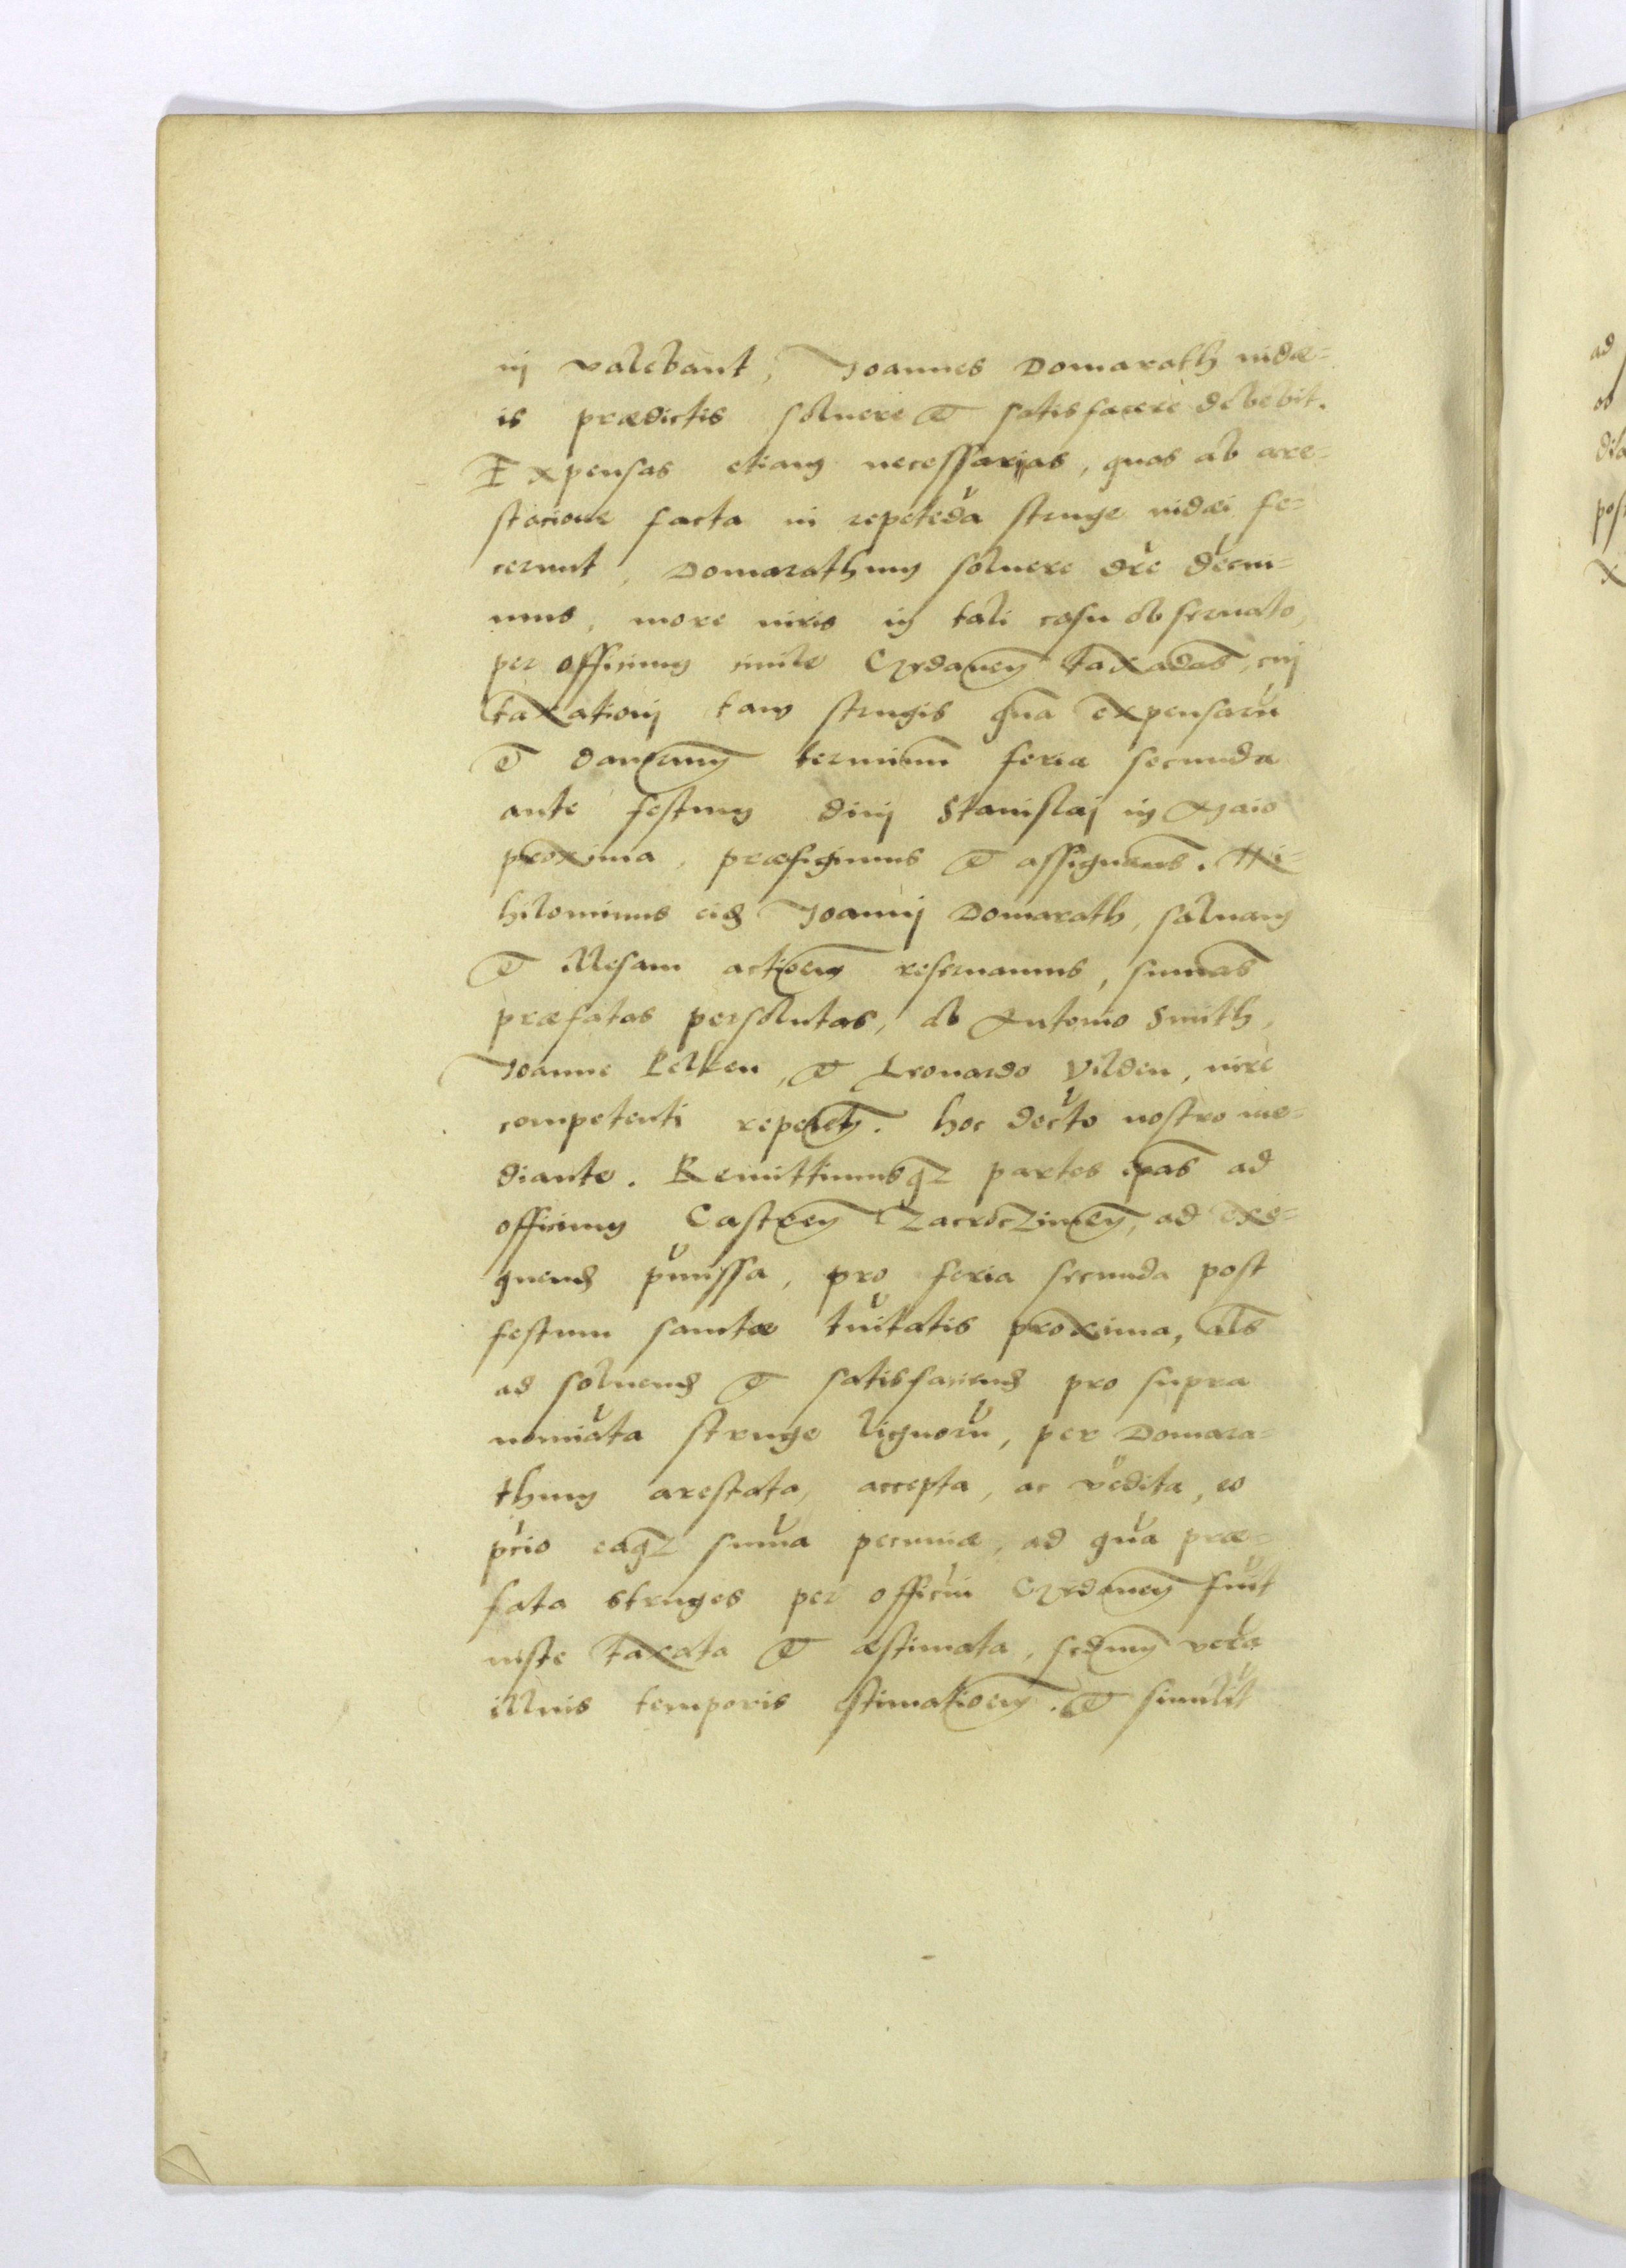 ij valebant, Joannes Domarath iudæ=
is prædictis soluere et satisfacere debebit.
Expensas etiam necessarias, quas ab are=
stacione facta in repetēda struge iudæi fe=
cerunt, Domarathum soluere dre decni=
mus, more iuris in tali casu obseruato,
per officium ciuile Gedanen taxadas, cuj
taxationj tam strugis qua expensarū
et damnum terminum feria secunda
ante festum diuj Stanislaj in Maio
proxima, præfigimus et assignamus. Ni=
hilominus eid Joannj Domarath, saluam
et illesam actioem reseruamus, summas
præfatas persolutas, ab Antonio Smith,
Joanne Lelken, et Leonardo Vilden, iure
competenti repetety. hoc decto nostro me=
diante. Remittimusqz partes ipas ad
officium Castren Zacroczimen, ad exe=
quend pmissa, pro feria secunda post
festum sanctæ tnitatis proxima, als
ad soluend et satisfaciend pro supra
nominata struge lignorū, per Domara=
thum arestata, accepta, ac vēdita, eo
pcio eaqz suma pecuniæ, ad quā præ=
fata struges per officiū Gedanen fuit
iuste taxata et æstimata, scdum verā
illius temporis estimatioem. et simulit
ad
ob